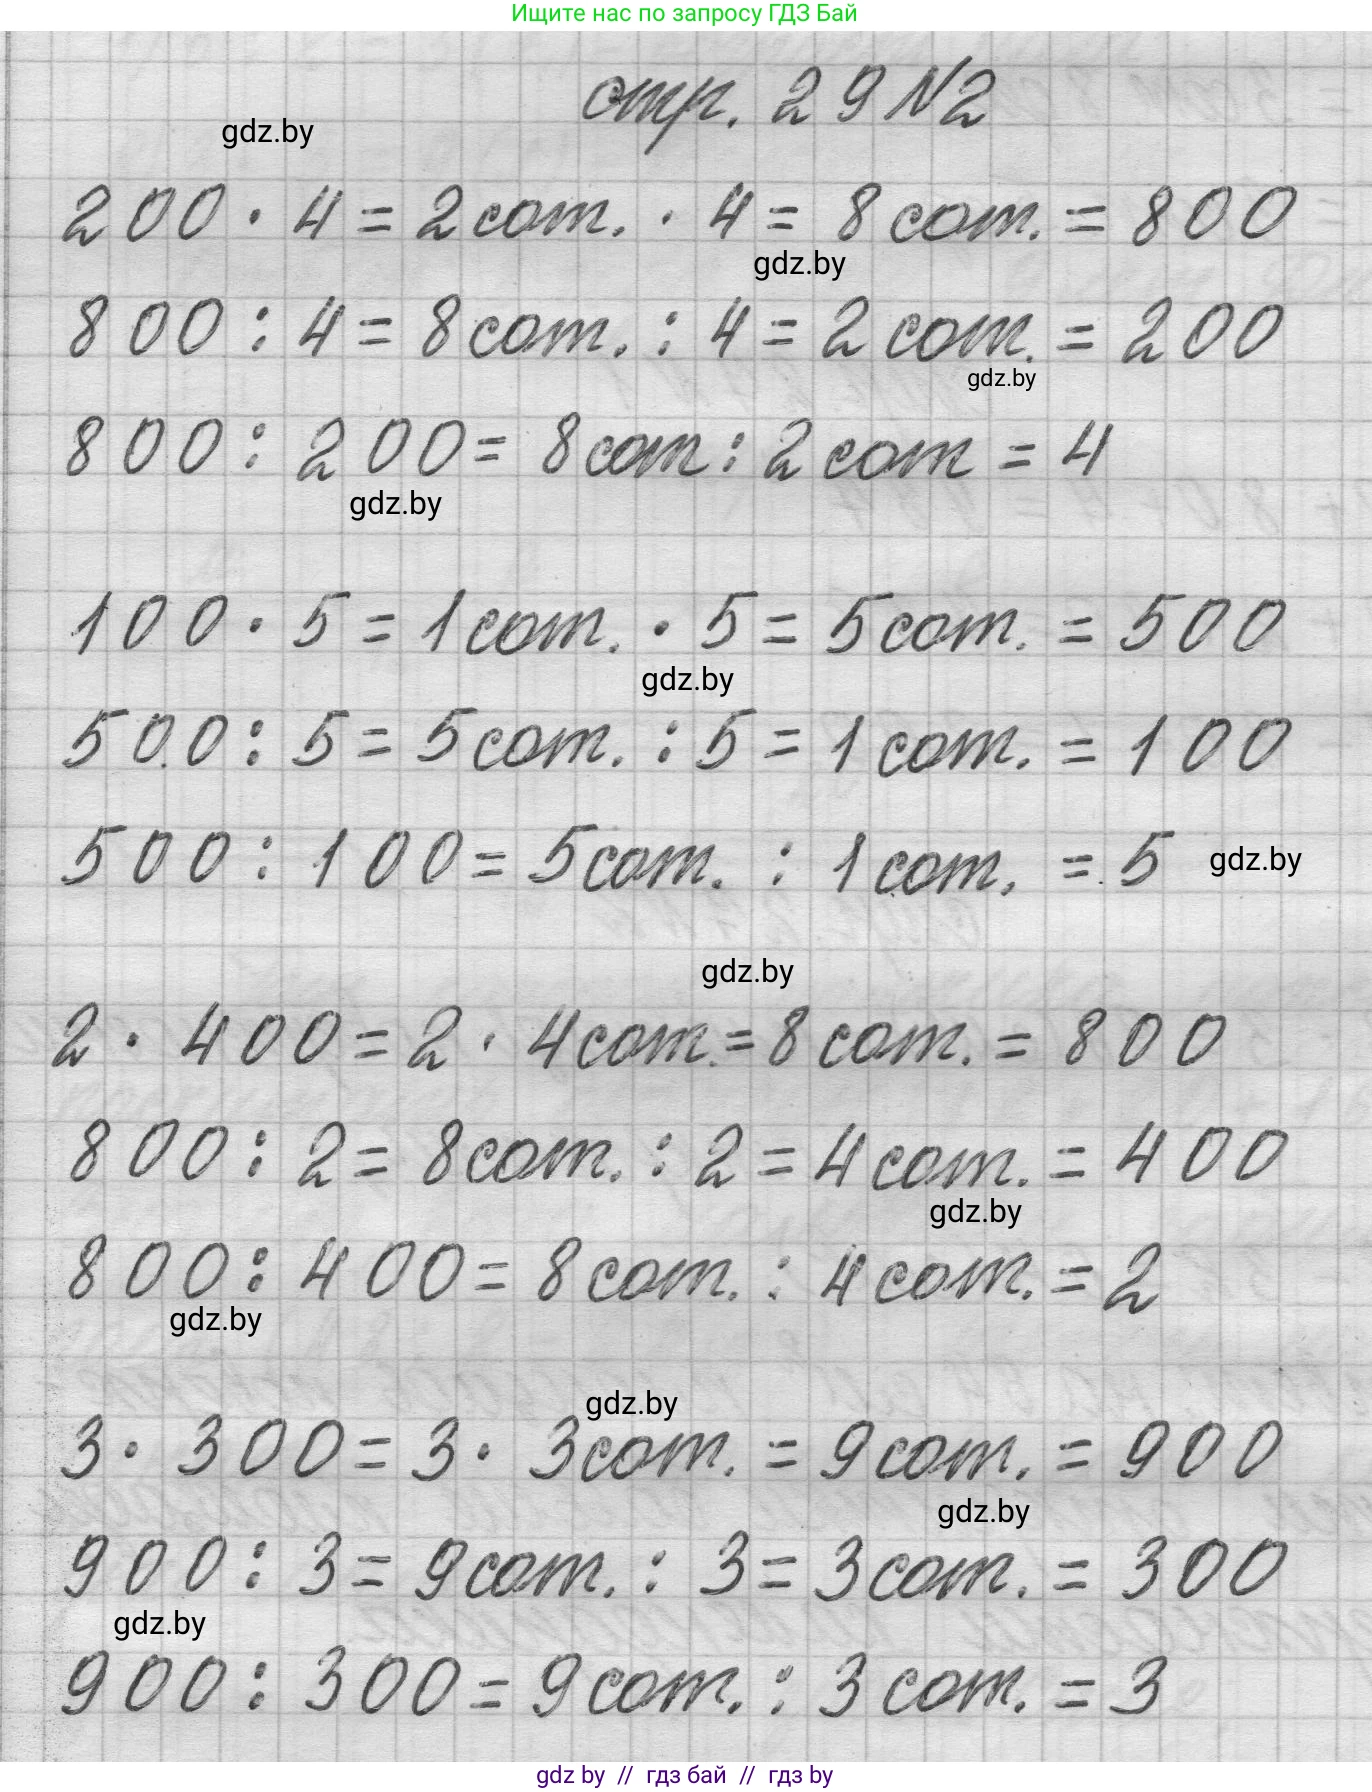 Ищите нас по запросу ГДЗ Бай
стр. 29 №2
gdz.by
200 · 4 = 2 сот. · 4 = 8 сот. = 800
gdz.by
800 : 4 = 8 сот. : 4 = 2 сот. = 200
gdz.by
800 : 200 = 8 сот : 2 сот = 4
gdz.by
100 · 5 = 1 сот. · 5 = 5 сот. = 500
gdz.by
500 : 5 = 5 сот. : 5 = 1 сот. = 100
500 : 100 = 5 сот. : 1 сот. = 5 gdz.by
gdz.by
2 · 400 = 2 · 4 сот. = 8 сот. = 800
800 : 2 = 8 сот. : 2 = 4 сот. = 400
gdz.by
800 : 400 = 8 сот. : 4 сот. = 2
gdz.by
gdz.by
3 · 300 = 3 · 3 сот. = 9 сот. = 900
gdz.by
900 : 3 = 9 сот. : 3 = 3 сот. = 300
gdz.by
900 : 300 = 9 сот. : 3 сот. = 3
gdz by // гдз бай // гдз by